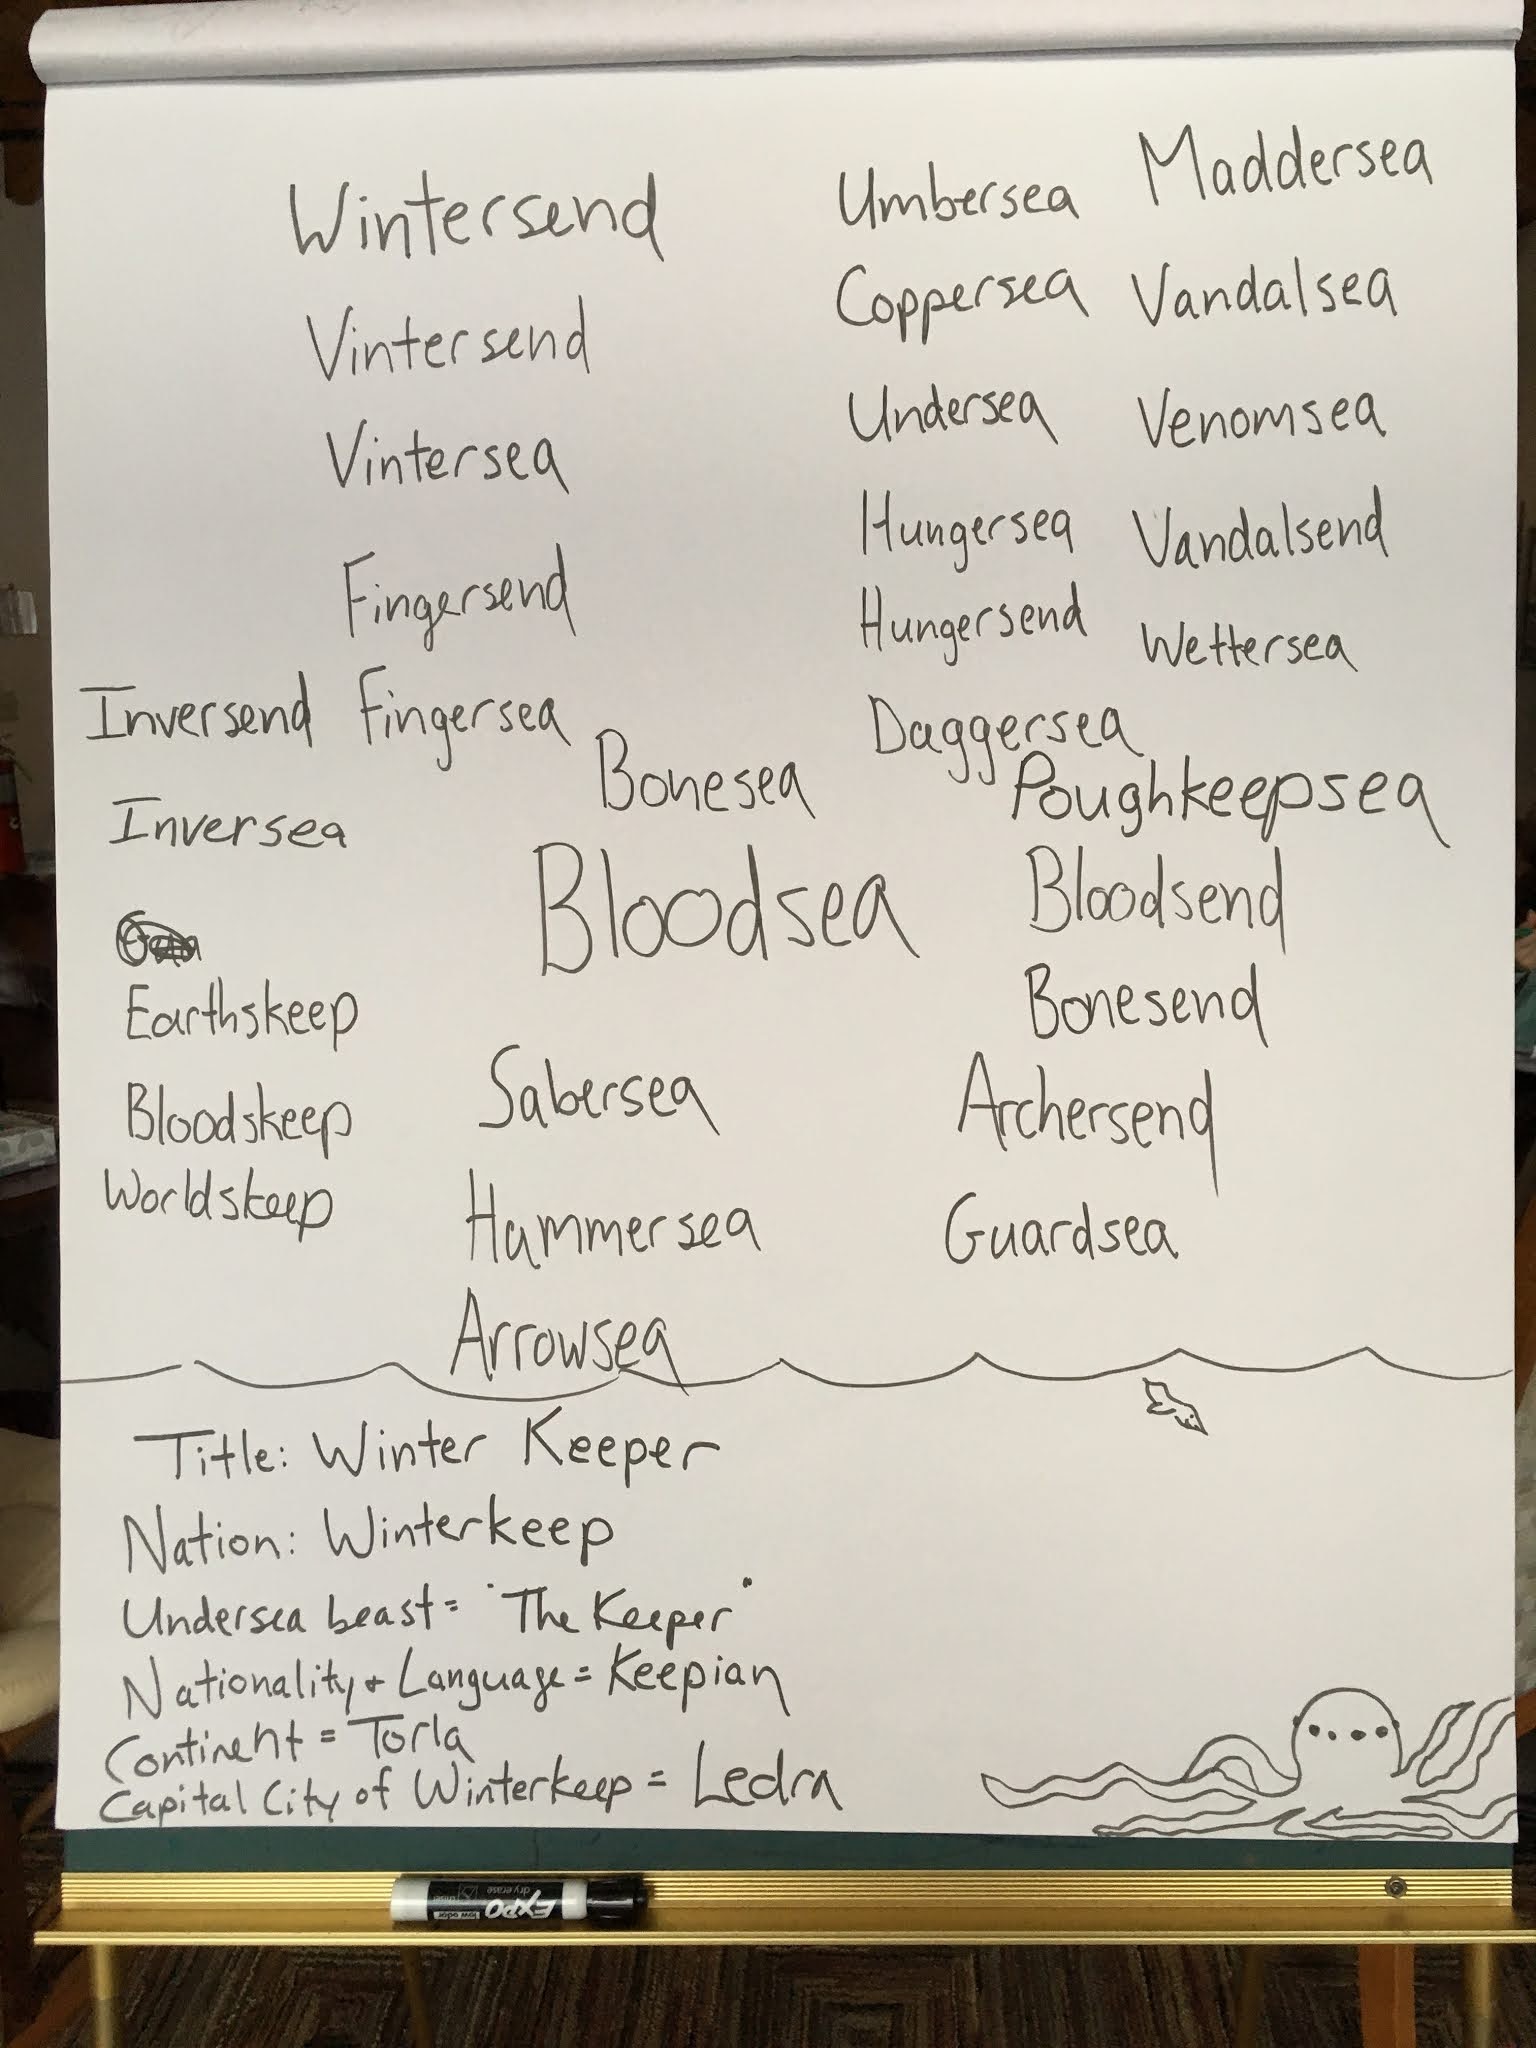 Wintersend
Vintersend
Vintersea
Fingersend
Inversend Fingersea
Inversea
Earthskeep
Bloodskeep
Worldskeep
Bonesea
Bloodsea
Sabersea
Hammersea
Arrowsea
Umbersea Maddersea
Coppersea Vandalsea
Undersea Venomsea
Hungersea Vandalsend
Hungersend Wettersea
Daggersea
Poughkeepsea
Bloodsend
Bonesend
Archersend
Guardsea
Title: Winter Keeper
Nation: Winterkeep
Undersea beast = "The Keeper"
Nationality + Language = Keepian
Continent = Torla
Capital City of Winterkeep = Ledra
EXPO
dry erase
low odor